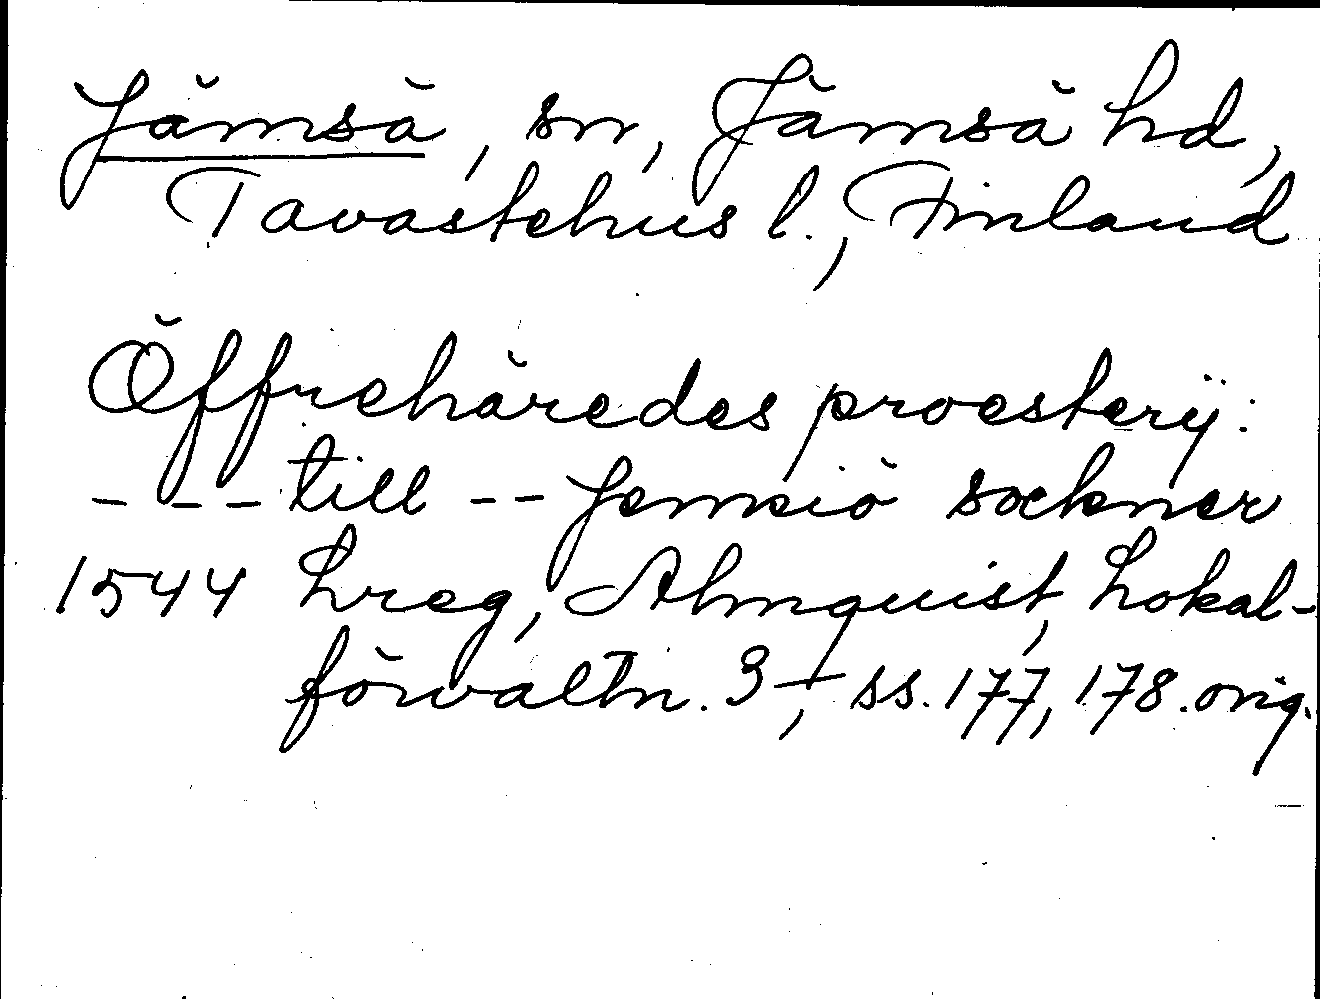 Jämsä, sn, Jämsä hd,
Tavastehus l., Finland
Öffrehäredes proesterÿ:
- - - till - - Jemsiö sockner
1544 Lreg, Almquist, Lokal-
förvaltn. 3, ss. 177, 178. orig.